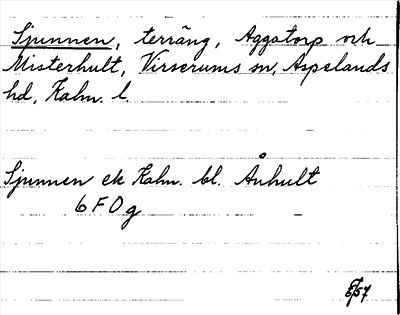 Sjunnen, terräng, Aggatorp och
Misterhult, Virserums sn, Aspelands
hd, Kalm. l.
Sjunnen ek Kalm. bl. Ånhult
6 F O g
57